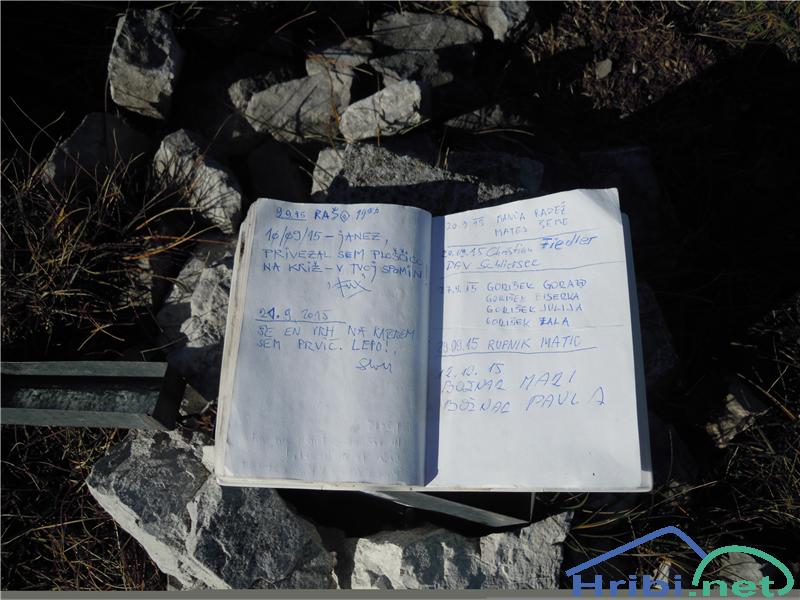 9.9.15 RAŠO 19⁰⁰
10/09/15 - JANEZ,
PRIVEZAL SEM PLOŠČICO
NA KRIŽ - V TVOJ SPOMIN!
21.9.2015
ŠE EN VRH NA KATEREM
SEM PRVIČ. LEPO!
20.9.15 MANCA RADEŽ
MATEJ SEME
20.09.15 Christian Fiedler
DAV Schliersee
27.9.15 GORIŠEK GORAZD
GORIŠEK BISERKA
GORIŠEK JULIJA
GORIŠEK ZALA
29.09.15 RUPNIK MATIC
12.10.15
BOŽNAR MARI
BOŽNAR PAVLA
Hribi.net